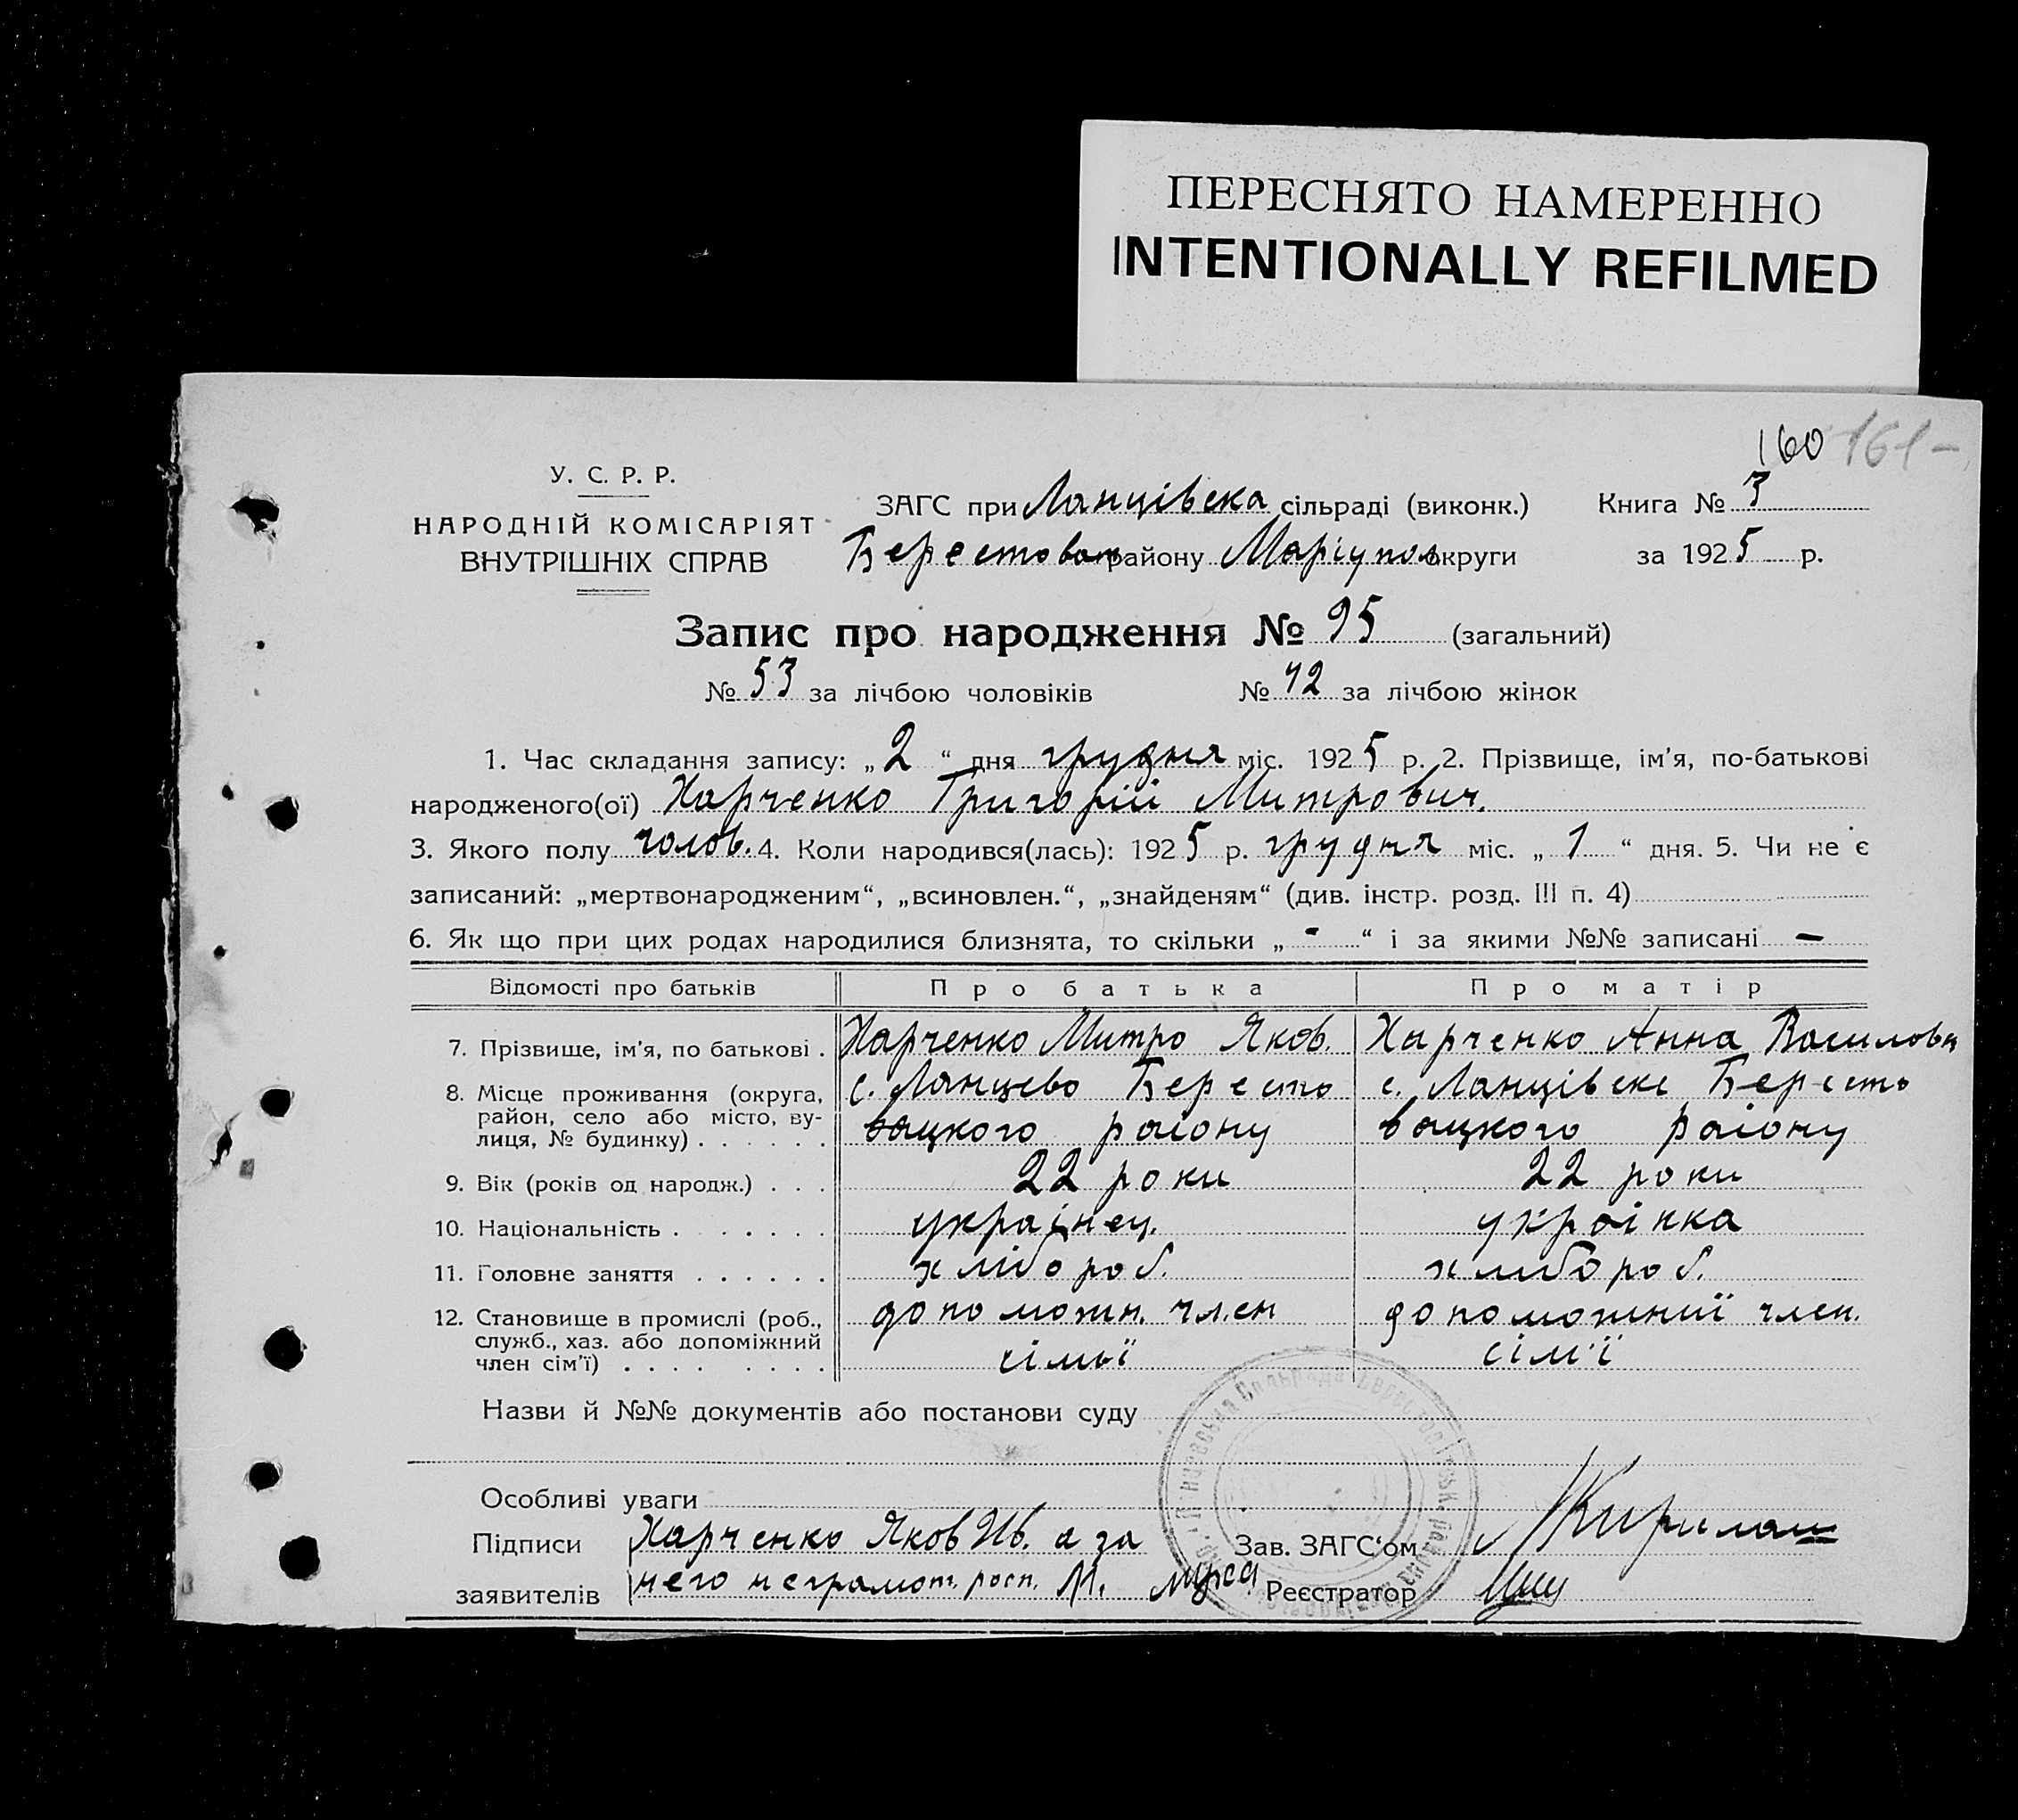 ПЕРЕСНЯТО НАМЕРЕННО
INTENTIONALLY REFILMED
160 161-
У. С. Р. Р.
НАРОДНІЙ КОМІСАРІЯТ
ВНУТРІШНІХ СПРАВ
ЗАГС при Ланцівска сільраді (виконк.) Книга № 3
Берестован району Маріупол округи за 1925 р.
Запис про народження № 95 (загальний)
№ 53 за лічбою чоловіків № 42 за лічбою жінок
1. Час складання запису: „2“ дня грудня міс. 1925 р. 2. Прізвище, ім'я, по-батькові
народженого(ої) Харченко Григорій Митрович.
3. Якого полу чолов. 4. Коли народився(лась): 1925 р. грудня міс. „1“ дня. 5. Чи не є
записаний: „мертвонародженим“, „всиновлен.“, „знайденям“ (див. інстр. розд. III п. 4)
6. Як що при цих родах народилися близнята, то скільки „-“ і за якими №№ записані —
Відомості про батьків Про батька Про матір
7. Прізвище, ім'я, по батькові . Харченко Митро Яков. Харченко Анна Василовн
8. Місце проживання (округа, с. Ланцево Бересто с. Ланцівске Бересто
район, село або місто, ву-
лиця, № будинку) . . . . . . вацкого раіону вацкого раіону
9. Вік (років од народж.) . . . 22 роки 22 роки
10. Національність . . . . . . . украінец. украінка
11. Головне заняття . . . . . . хлібороб. хлибороб.
12. Становище в промислі (роб., допоможн. член допоможний член.
служб., хаз. або допоміжний
член сім'ї) . . . . . . . . сімьї сім'ї
Назви й №№ документів або постанови суду
Особливі уваги
Підписи Харченко Яков Ив. а за Зав. ЗАГС'ом
заявителів него неграмот. росп. М. Реєстратор